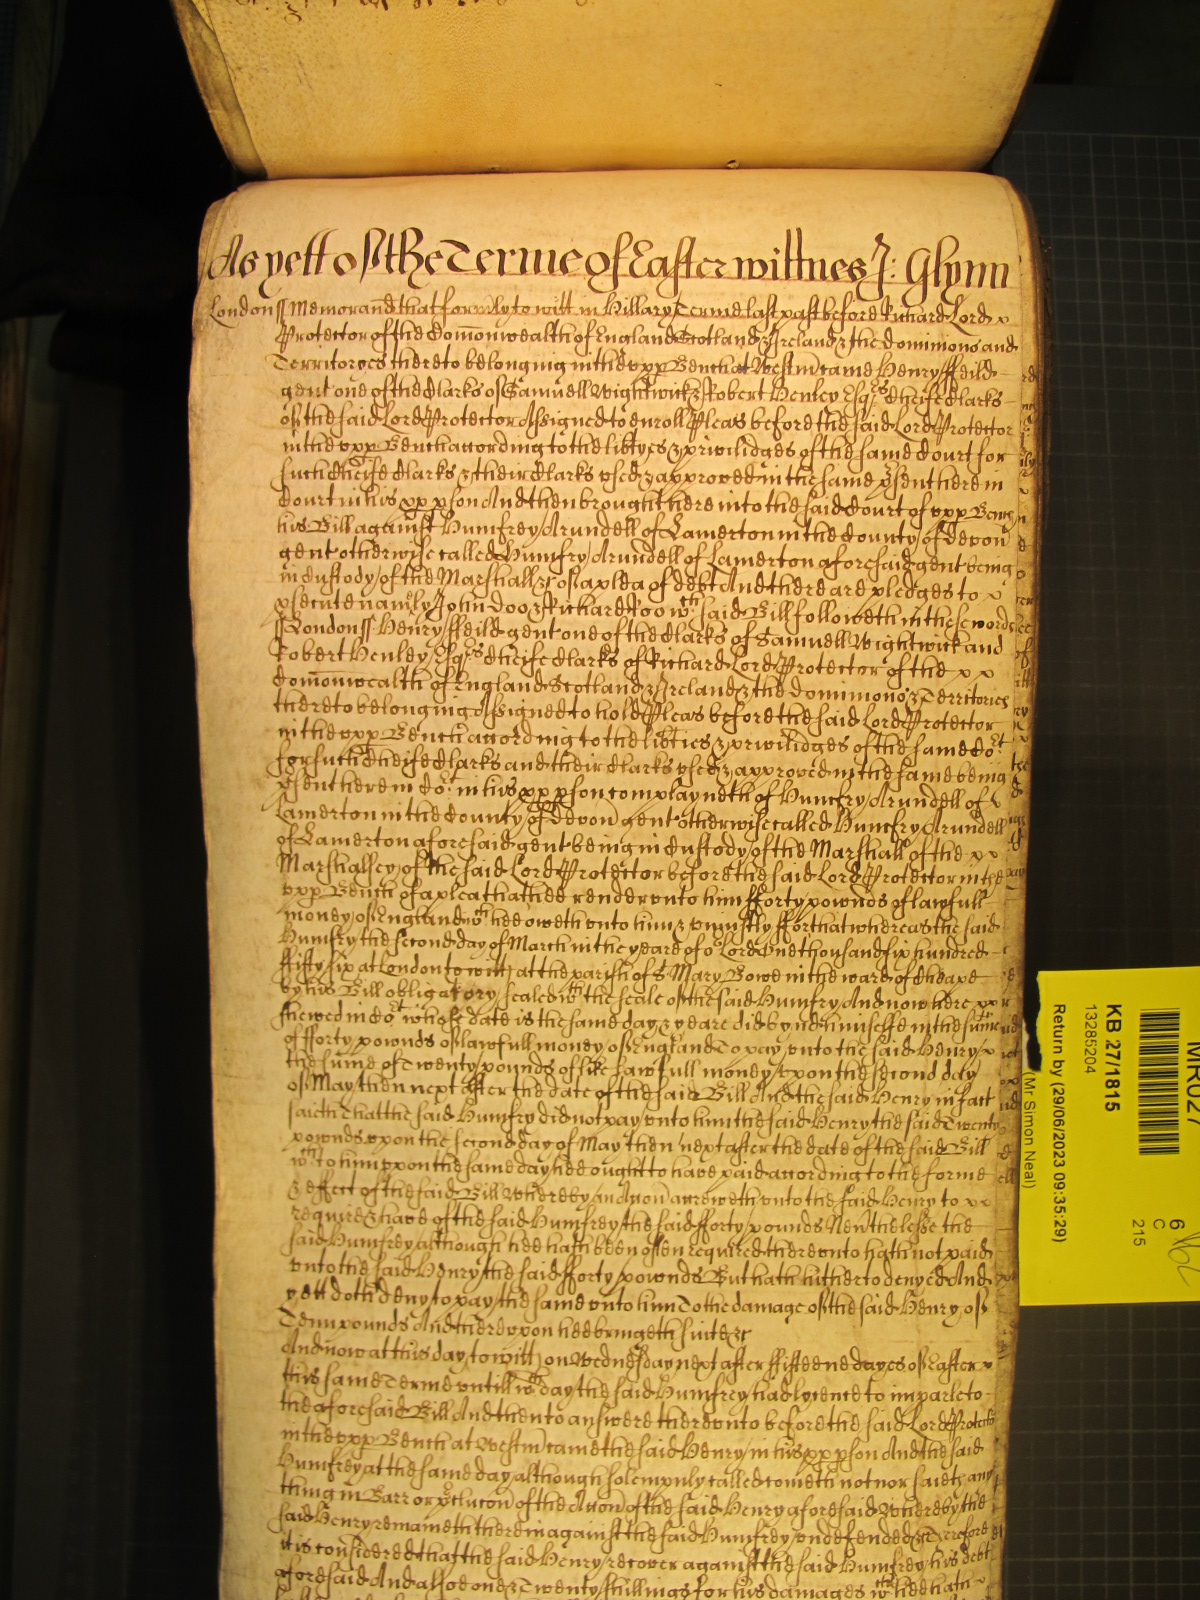 As yett of the Terme of Easter wittnes J: Glynn
London ss Memorand that formly to witt in Hillary Terme last past before Richard Lord
Protector of the Comonwealth of England Scotland & Ireland & the dominions and
Territoryes thereto belonging in the vpp Bench at Westm came Henry ffeild
gent one of the Clarks of Samuell Wightwick & Robert Henley Esqrs Cheife Clarks
of the said Lord Protector Assigned to enroll Pleas before the said Lord Protector
in the vpp Bench according to the libtyes & priviledges of the same Court for
such Cheife Clarks & their Clarks vsed & approved in the same psent here in
Court in his pp pson And then brought here into the said Court of vpp Bench
his Bill against Humfrey Arundell of Lamerton in the County of Devon
gent otherwise called Humfry Arundell of Lamerton aforesaid gent being
in Custody of the Marshall &c of a plea of debt And there are pledges to
psecute namely John Doo & Richard Roo wch said Bill followeth in these words
ss London ss Henry ffeild gent one of the Clarks of Samuell Wightwick and
Robert Henley Esqrs Cheife Clarks of Richard Lord Protector of the
Comonwealth of England Scotland & Ireland & the dominions & Territories
thereto belonging Assigned to hold Pleas before the said Lord Protector
in the vpp Bench according to the libties & priviledges of the same Cort
for such Cheife Clarks and their Clarks vsed & approved in the same being
psent here in Cort in his pp pson complayneth of Humfry Arundell of
Lamerton in the County of Devon gent otherwise called Humfry Arundell
of Lamerton aforesaid gent being in Custody of the Marshall of the
Marshalsey of the said Lord Protector before the said Lord Protector in the
vpp Bench of a plea that hee render vnto him fforty pownds of lawfull
money of England wch hee oweth vnto him & vniustly &c ffor that whereas the said
Humfry the second day of March in the yeare of or Lord One thousand six hundred
ffifty six at London to witt at the parish of S Mary Bowe in the ward of Cheape
by his Bill obligatory sealed wth the seale of the said Humfry And now here
shewed in Cort whose date is the same day & yeare did bynd himselfe in the sume
of fforty pownds of lawfull money of England To pay vnto the said Henry
the sume of Twenty pounds of like lawfull money vpon the second day
of May then next after the date of the said Bill And the said Henry in fact
saith That the said Humfry did not pay vnto him the said Henry the said Twenty
pownds vpon the second day of May then next after the date of the said Bill
wch to him vpon the same day hee ought to have paid according to the forme
& effect of the said Bill Whereby an Accon accreweth vnto the said Henry to
require & have of the said Humfrey the said fforty pounds Neutheless the
said Humfrey although hee hath been often required therevnto hath not paid
vnto the said Henry the said fforty pownds But hath hitherto denyed And
yett doth deny to pay the same vnto him To the damage of the said Henry of
Tenn pounds And therevpon hee bringeth suite &c
And now at this day to witt on Wednesday next after ffifteene dayes of Easter
this same Terme vntill wch day the said Humfrey had lycence to imparle to
the aforesaid Bill And then to answere therevnto before the said Lord Protector
in the vpp Bench at Westm came the said Henry in his pp pson And the said
Humfrey at the same day although solempnly called cometh not nor saieth any
thing in Barr or pclucon of the Accon of the said Henry aforesaid Whereby the
said Henry remaineth therein against the said Humfrey vndefended &c Therefore
it is considered that the said Henry recover against the said Humfrey his debt
aforesaid And alsoe one & Twenty shillings for his damages wch hee hath
MR027
KB 27/1815
13285204
Return by (29/06/2023 09:35:29)
(Mr Simon Neal)
6
C
215